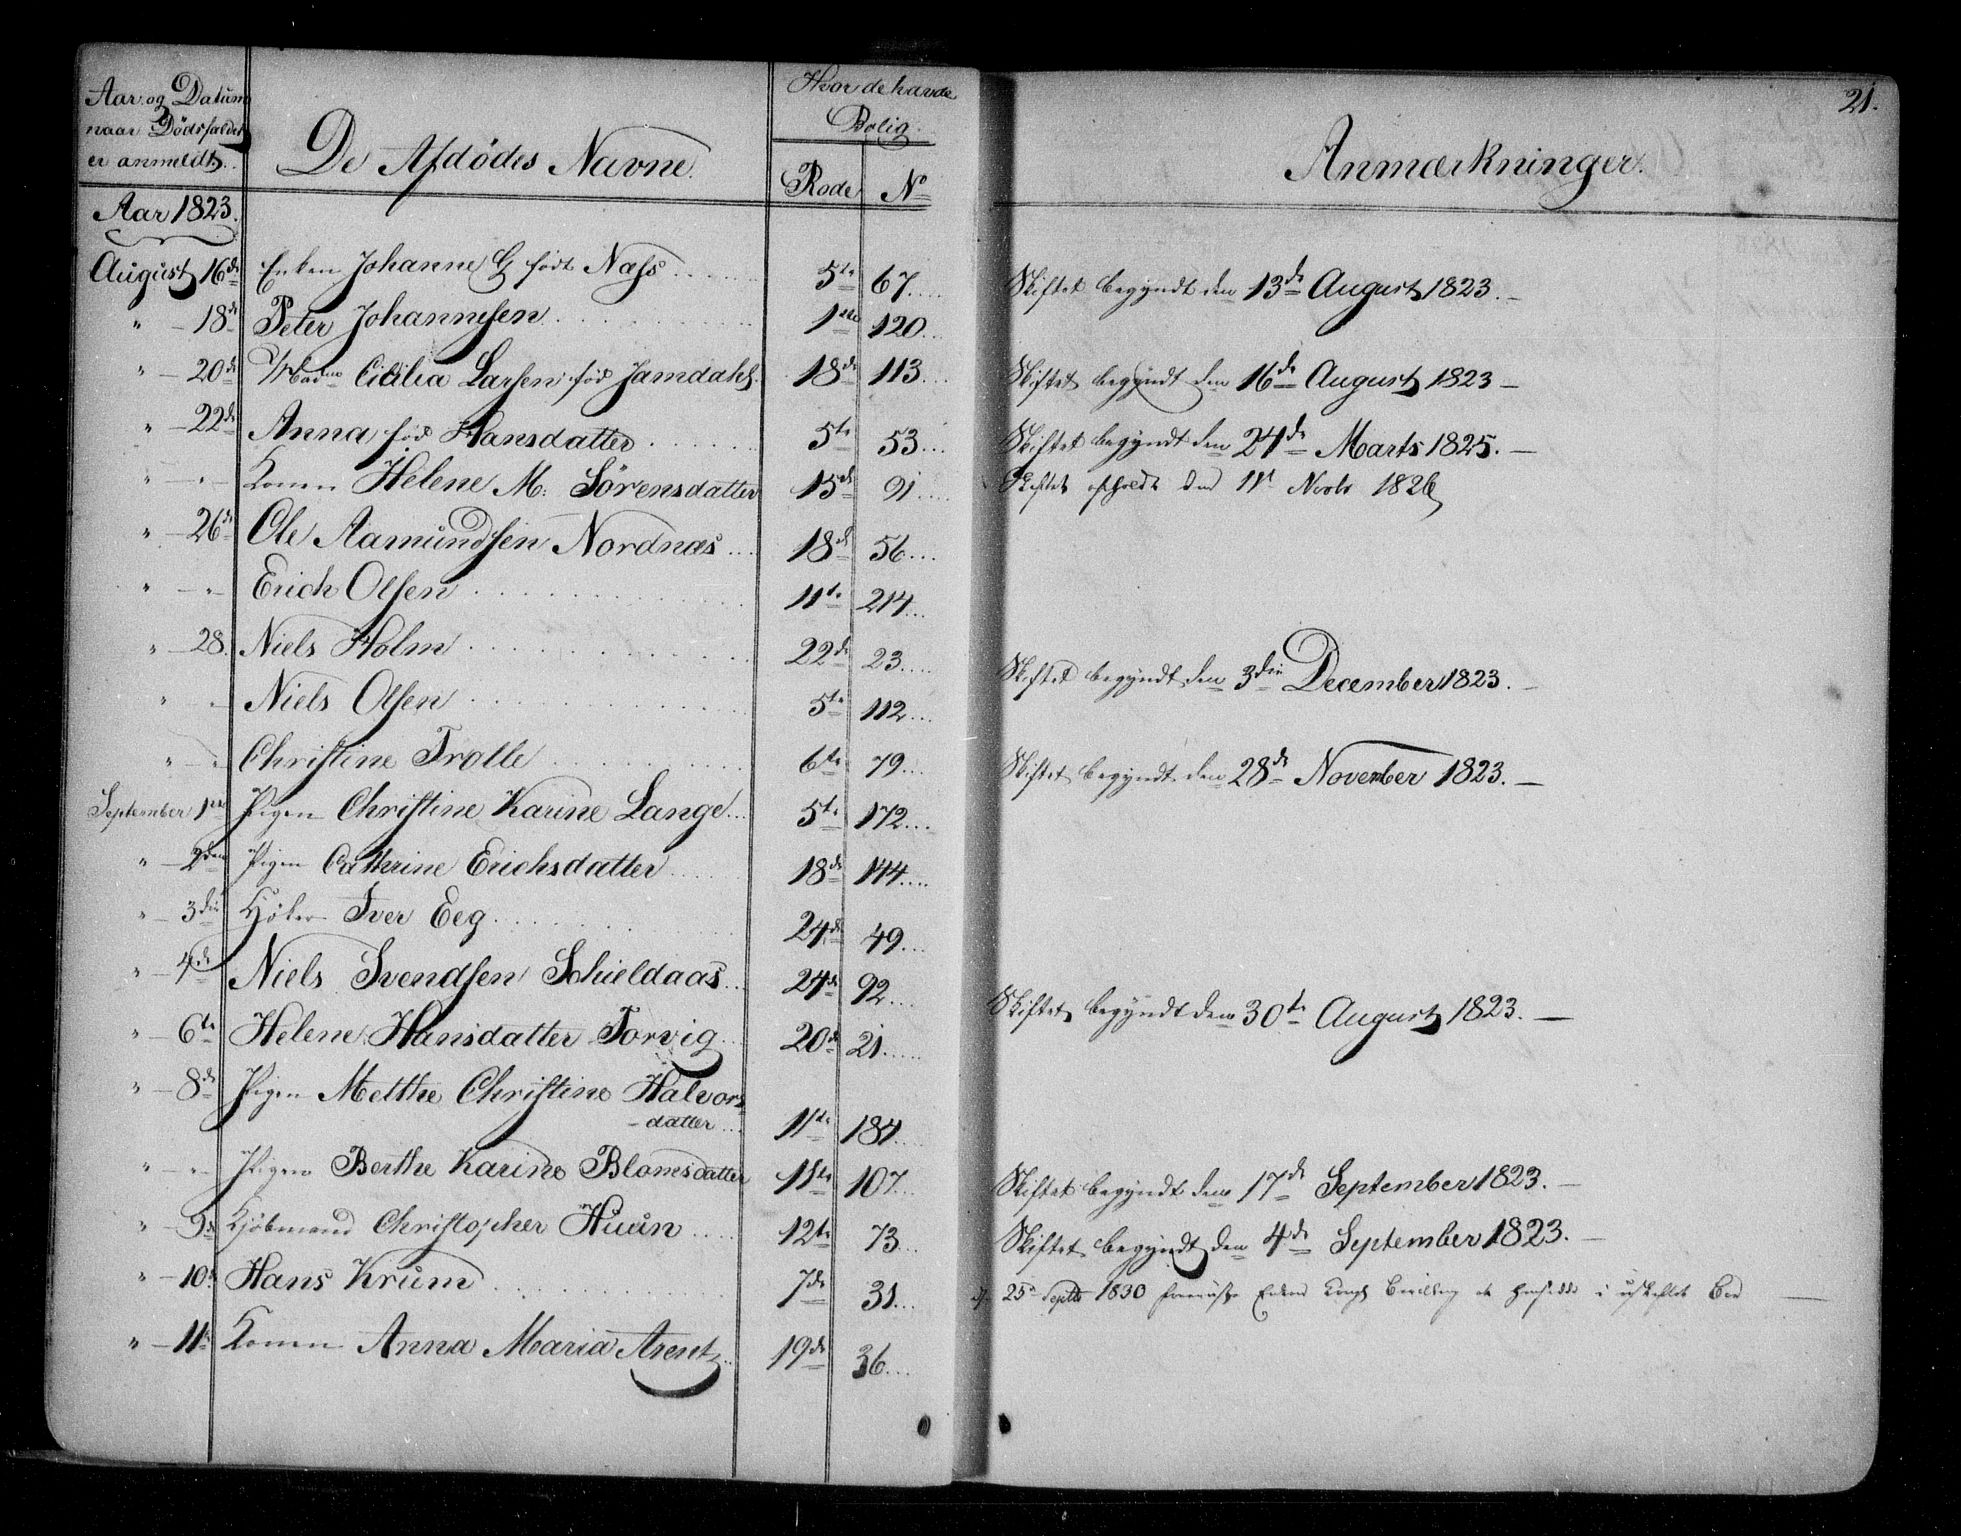 21.
Aar og Datum
naar Dödsfaldet
er anmeldt.
De Afdödes Navne.
Hvor de havde
Bolig.
Rode
No
Anmærkninger.
Aar 1823.
August 16de Enken Johanne G födt Næss 5te 67. Skiftet begyndt den 13de August 1823.
" - 18de Peter Johannesen 1ste 120.
" - 20de Madme Cicilia Larsen föd Jamdahl 18de 113. Skiftet begyndt den 16de August 1823
" - 22de Anna föd Hansdatter 5te 53. Skiftet begyndt den 24de Marts 1825.
" - " Konen Helene M: Sörensdatter 15de 91. Skiftet afholdt den 11t Novbr 1826
" - 26de Ole Aamundsen Nordnæs 18de 56.
" - " Erich Olsen 11te 214.
" - 28. Niels Holm 22de 23. Skiftet begyndt den 3die December 1823.
" - Niels Olsen 5te 112.
" - " Christine Trolle 6te 79. Skiftet begyndt den 28de November 1823.
September 1ste Pigen Christine Karine Lange 5te 172.
" - 2den Pigen Cathrine Erichsdatter 18de 144.
" - 3die Höker Iver Eeg 24de 49.
" - 4de Niels Svendsen Schieldaas 24de 92. Skiftet begyndt den 30te August 1823.
" - 6te Helene Hansdatter Torvig 20de 21.
" - 8de Pigen Metthe Christine Halvors
datter 11te 184.
" - " Pigen Berthe Karine Blomsdatter 11te 107. Skiftet begyndt den 17de September 1823.
" - 9de Kjöbmand Christopher Huun 12te 73. Skiftet begyndt den 4de September 1823.
" - 10de Hans Krum 7de 31. 25de Septbr 1830 Enken Bevilling i uskiftet Boe
" - 11te Konen Anna Maria Arentz 19de 36.